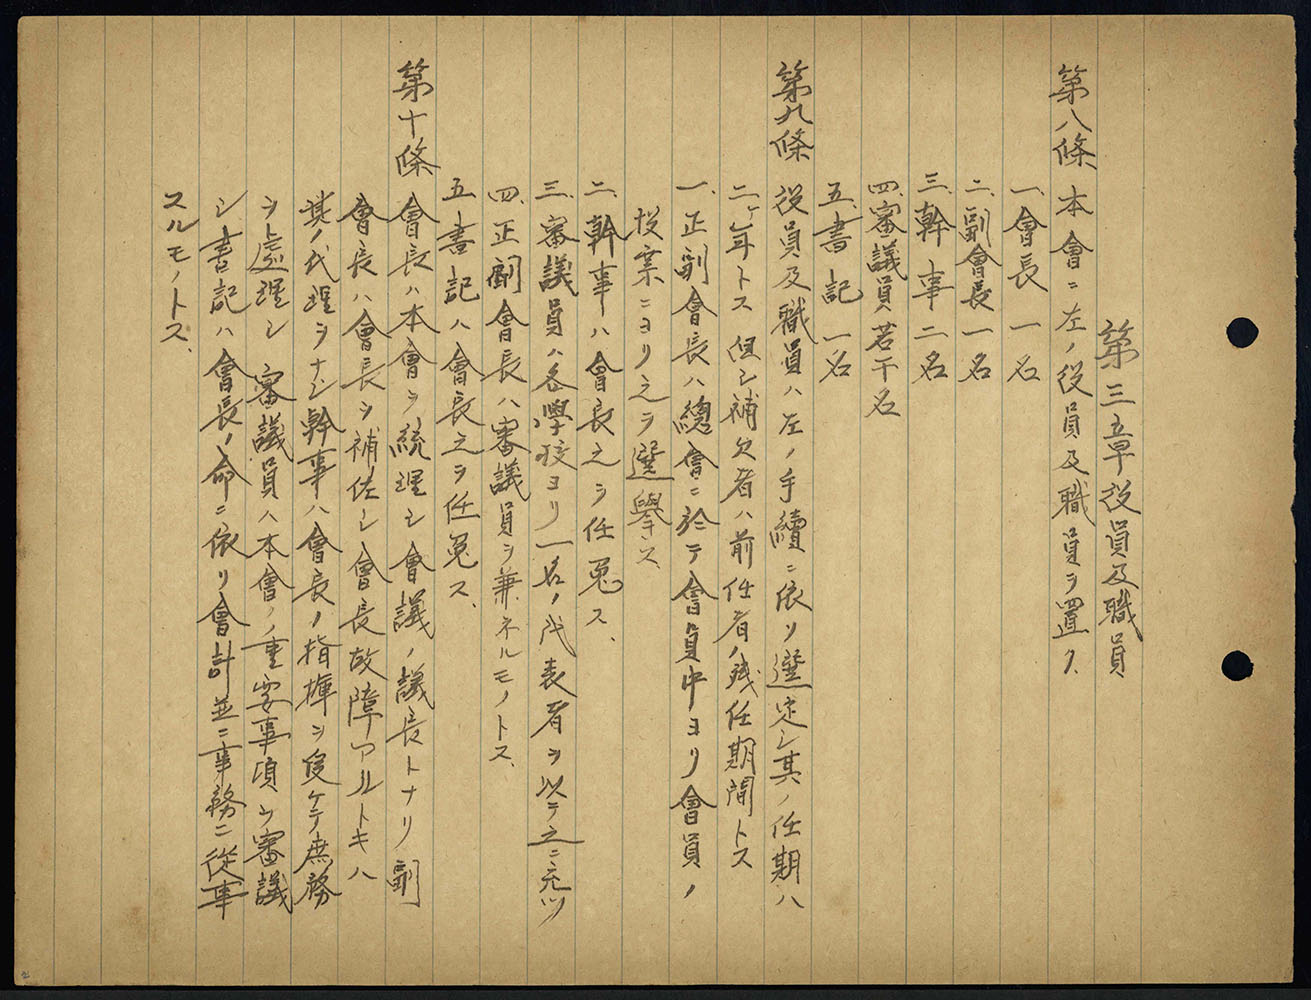 第三章役員及職員
第八條 本會ニ左ノ役員及職員ヲ置ク、
一、會長 一名
二、副會長 一名
三、幹事 二名
四、審議員 若干名
五、書記 一名
第九條 役員及職員ハ左ノ手續ニ依リ選定シ其ノ任期ハ
二ヶ年トス 但シ補欠者ハ前任者ノ残任期間トス
一、正副會長ハ總會ニ於テ會員中ヨリ會員ノ
投票ニヨリ之ヲ選擧ス、
二、幹事ハ會長之ヲ任免ス、
三、審議員ハ各學校ヨリ一名ノ代表者ヲ以テ之ニ充ツ
四、正副會長ハ審議員ヲ兼ネルモノトス、
五、書記ハ會長之ヲ任免ス、
第十條 會長ハ本會ヲ統理シ會議ノ議長トナリ副
會長ハ會長ヲ補佐シ會長故障アルトキハ
其ノ代理ヲナシ幹事ハ會長ノ指揮ヲ受ケテ庶務
ヲ處理シ 審議員ハ本會ノ重要事項ヲ審議
シ書記ハ會長ノ命ニ依リ會計並ニ事務ニ從事
スルモノトス、